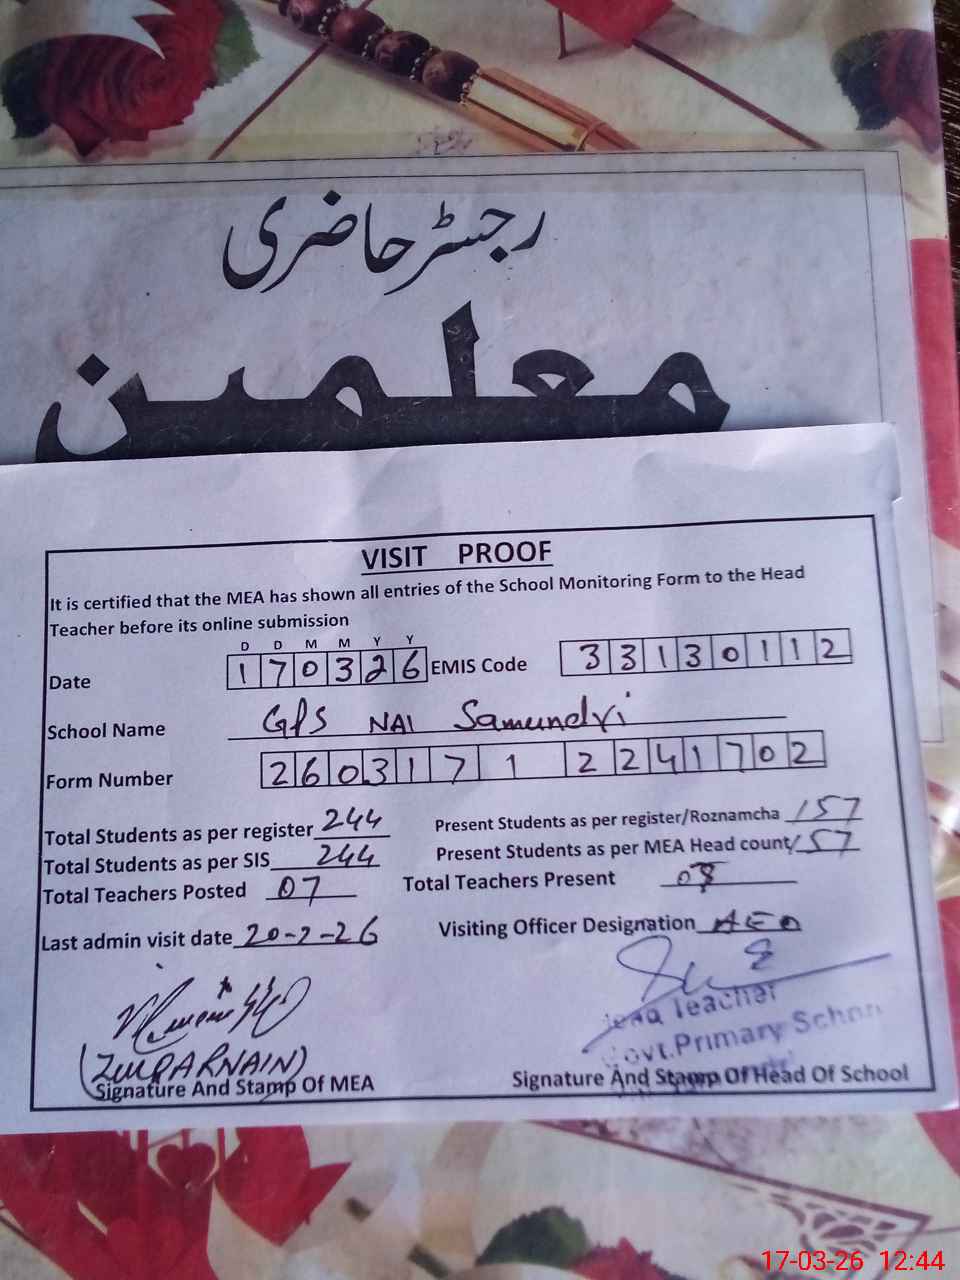 رجسٹر حاضری
معلمین
VISIT PROOF
It is certified that the MEA has shown all entries of the School Monitoring Form to the Head
Teacher before its online submission
D D M M Y Y
Date 170326 EMIS Code 33130112
School Name GPS NAI Samundri
Form Number 26031712241702
Total Students as per register 244 Present Students as per register/Roznamcha 157
Total Students as per SIS 244 Present Students as per MEA Head count 157
Total Teachers Posted 07 Total Teachers Present
Last admin visit date 20-2-26 Visiting Officer Designation AEO
Head Teacher
Govt. Primary School
(ZULQARNAIN)
Signature And Stamp Of MEA Signature And Stamp Of Head Of School
17-03-26 12:44